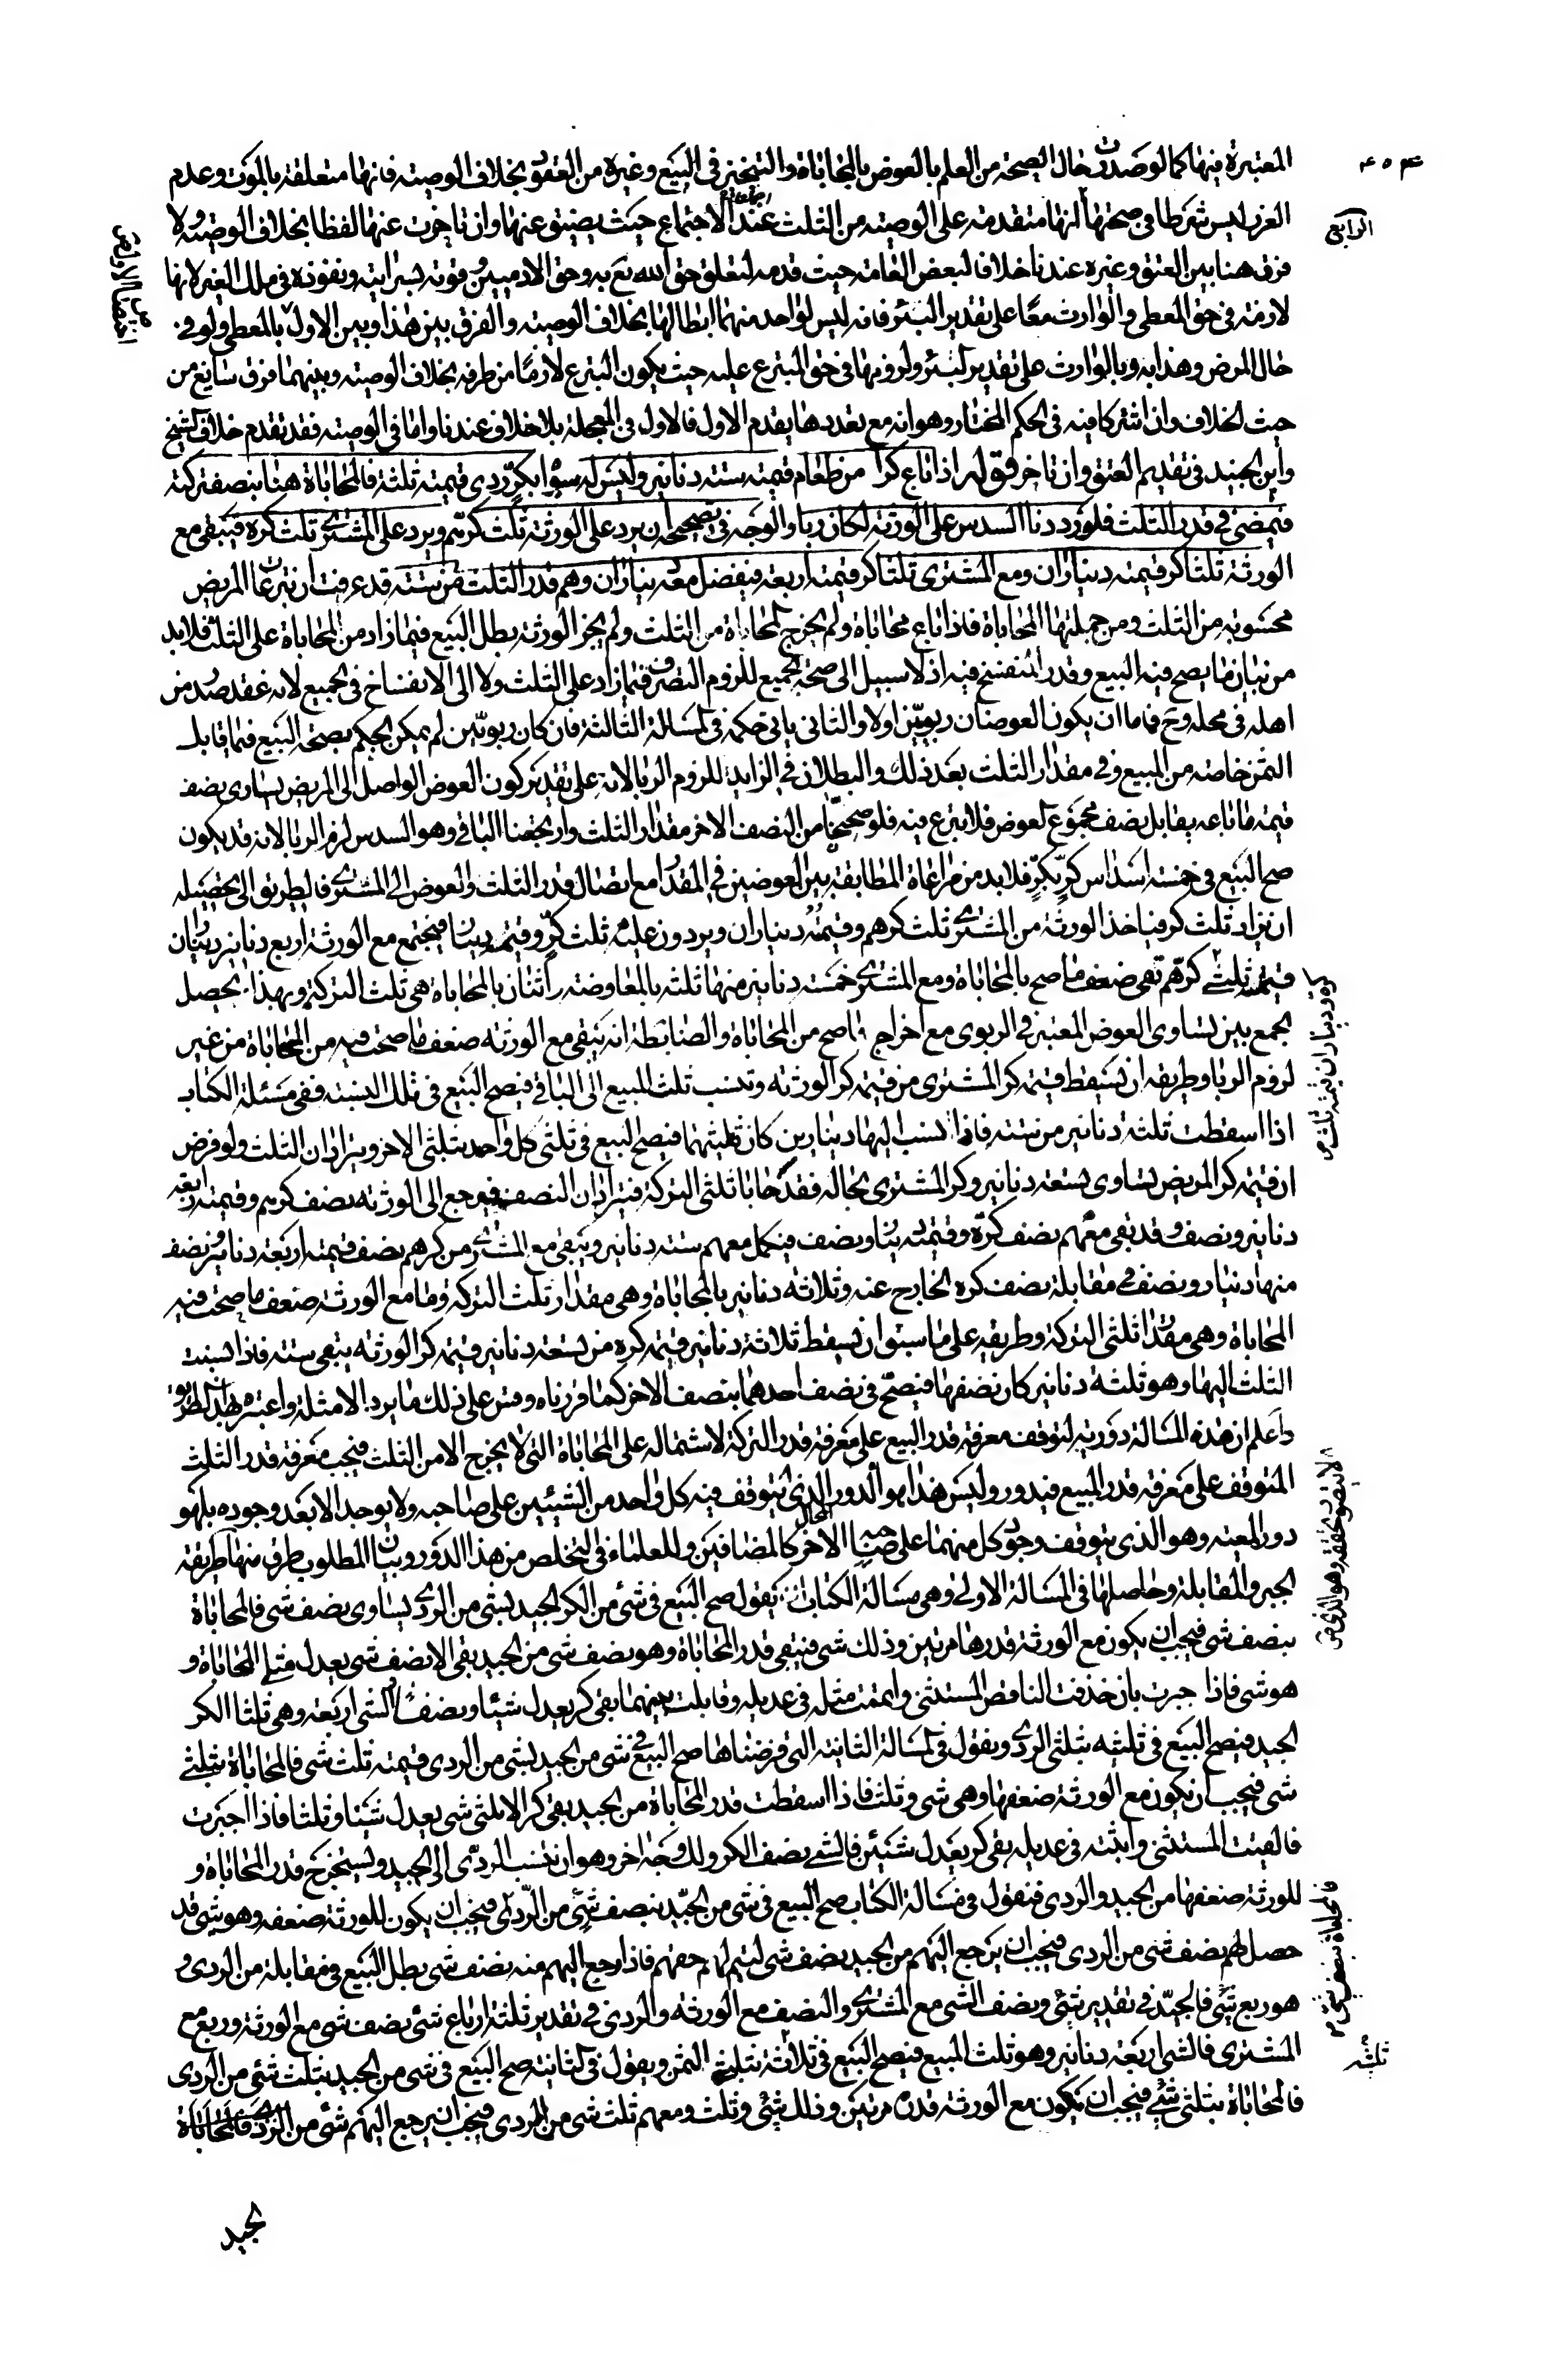 ٤٥٣
المعتبرة فيها كما لو صدرت حال الصحة من العلم بالعوض بالمحاباة والتنجيز في البيع وغيره من العقود بخلاف الوصية فانها متعلقة بالموت وعدم
الرابع
الغرر ليس شرطا في صحتها انها متقدمة على الوصية من الثلث عند الاجتماع حيث يضيق عنها وان تاخرت عنها لفظا بخلاف الوصية ولا
فرق هنا بين العتق وغيره عندنا خلافا لبعض العامة حيث قدمه لتعلق حق الله تع به وحق الادميين وقوته بسرايته ونفوذه في ملك الغير لانها
لازمة في حق المعطي والوارث معا على تقدير البرء فانه ليس لواحد منهما ابطالها بخلاف الوصية والفرق بين هذا وبين الاول بالمعطي ولو في
حال المرض وهذا به وبالوارث على تقدير البرء ولزومها في حق المتبرع عليه حيث يكون التبرع لازما من طرفه بخلاف الوصية وبينهما فرق سايغ من
حيث الخلاف وان اشتركا فيه في الحكم المختار وهو انه مع تعددها يقدم الاول فالاول في المعجلة بلا خلاف عندنا واما في الوصية فقد تقدم خلاف الشيخ
وابن الجنيد في تقديم العتق وان تاخر قوله اذا باع كرا من طعام قيمته ستة دنانير وليس له سواه بكر ردي قيمته ثلثة فالمحاباة هنا بنصف تركته
فيمضي في قدر الثلث فلو رددنا السدس على الورثة لكان ربا والوجه في تصحيحه ان يرد على الورثة ثلث كرهم ويرد على المشتري ثلث كره فيبقى مع
الورثة ثلثا كر قيمته ديناران ومع المشتري ثلثا كر قيمته اربعة فيفضل معه ديناران وهو قدر الثلث من ستة قد عرفت ان تبرعات المريض
محسوبة من الثلث ومن جملتها المحاباة فاذا باع محاباة ولم يخرج المحاباة من الثلث ولم يجز الورثة بطل البيع فيما زاد من المحاباة على الثلث فلا بد
من بيان ما يصح فيه البيع وقدر المنفسخ فيه اذ لا سبيل الى صحة الجميع للزوم التصرف فيما زاد على الثلث ولا الى الانفساخ في الجميع لانه عقد صدر من
اهله في محله وح فاما ان يكون العوضان ربويين اولا والثاني ياتي حكمه في المسالة الثالثة فان كان ربويين لم يمكن الحكم بصحة البيع فيما قابل
الثمن خاصة من المبيع وفي مقدار الثلث بعد ذلك والبطلان في الزايد للزوم الربا لانه على تقدير كون العوض الواصل الى المريض يساوي نصف
قيمة ما باعه يقابل نصف مجموع العوض فلا تبرع فيه فلو صححنا من النصف الاخر مقدار الثلث وارجعنا الباقي وهو السدس لزم الربا لانه قد يكون
صح البيع في خمسة اسداس كر بكر فلا بد من مراعاة المطابقة بين العوضين في المقدار مع ايصال قدر الثلث والعوض الى المشتري فالطريق الى تحصيله
ان يزاد ثلث كر فياخذ الورثة من المشتري ثلث كرهم وقيمته ديناران ويردون عليه ثلث كره وقيمته دينار فيجتمع مع الورثة اربع دنانير ديناران
قيمة ثلثي كرهم فهي ضعف ما صح بالمحاباة ومع المشتري خمسة دنانير منها ثلثة بالمعاوضة واثنان بالمحاباة هي ثلث التركة وبهذا يحصل
الجمع بين تساوي العوض المعتبر في الربوي مع اخراج ما صح من المحاباة والضابطة انه يبقى مع الورثة ضعف ما صحت فيه من المحاباة من غير
لزوم الربا وطريقه ان تسقط قيمة كر المشتري من قيمة كر الورثة وتنسب ثلث المبيع الى الباقي فيصح البيع في تلك النسبة ففي مسئلة الكتاب
اذا اسقطت ثلثة دنانير من ستة فاذا نسب اليها دينارين كان ثلثيها فيصح البيع في ثلثي كل واحد بثلثي الاخر ويترادان الثلث ولو فرض
ان قيمة كر المريض تساوي تسعة دنانير وكر المشتري بحاله فقد حابا ثلثي التركة فيترادان النصف فيرجع الى الورثة نصف كرهم وقيمته اربعة
دنانير ونصف وقد بقي معهم نصف كره وقيمته دينار ونصف فيكمل معهم ستة دنانير ويبقى مع المشتري من كرهم نصف قيمته اربعة دنانير ونصف
منها دينار ونصف في مقابلة نصف كره الخارج عنه وثلاثة دنانير بالمحاباة وهي مقدار ثلث التركة وما مع الورثة ضعف ما صحت فيه
المحاباة وهي مقدار ثلثي التركة وطريقه على ما سبق ان تسقط ثلاثة دنانير قيمة كره من تسعة دنانير قيمة كر الورثة يبقى ستة فاذا نسبت
الثلث اليها وهو ثلثة دنانير كان نصفها فيصح في نصف احدهما بنصف الاخر كما قررناه وقس على ذلك ما يرد الامثلة واعتبره بهذا الطريق
واعلم ان هذه المسالة دورية لتوقف معرفة قدر المبيع على معرفة قدر التركة لاشتماله على المحاباة التي لا يخرج الا من الثلث فيجب معرفة قدر الثلث
المتوقف على معرفة قدر المبيع فيدور وليس هذا هو الدور الذي يتوقف فيه كل واحد من الشيئين على صاحبه ولا يوجد الا بعد وجوده بل هو
دور المعية وهو الذي يتوقف وجود كل منهما على صاحبه الاخر كالمضافين وللعلماء في التخلص من هذا الدور وبيان المطلوب طرق منها طريقة
الجبر والمقابلة وحاصلها في المسالة الاولى وهي مسالة الكتاب يقول صح البيع في شئ من الكر الجيد بشئ من الردي يساوي نصف شئ فالمحاباة
بنصف شئ فيجب ان يكون مع الورثة قدرها مرتين وذلك شئ فتبقى قدر المحاباة وهو نصف شئ من الجيد بقي الا نصف شئ يعدل مثلي المحاباة و
هو شئ فاذا جبرت بان حذفت الناقص المستثنى واتممت مثله في عديله وقابلت بينهما بقي كر يعدل شيئا ونصفا فالشئ اربعة وهي ثلثا الكر
الجيد فيصح البيع في ثلثيه بثلثي الردي ويقول في المسالة الثانية التي فرضناها صح البيع في شئ من الجيد بشئ من الردي قيمته ثلث شئ فالمحاباة بثلثي
شئ فيجب ان يكون مع الورثة ضعفها وهي شئ وثلث فاذا اسقطت قدر المحاباة من الجيد بقي كر الا ثلثي شئ يعدل شيئا وثلثا فاذا اجبرت
فالقيت المستثنى واثبته في عديله بقي كر يعدل شيئين فالشئ نصف الكر ولك وجه اخر وهو ان تنسب الردي الى الجيد وتستخرج قدر المحاباة و
للورثة ضعفها من الجيد والردي فنقول في مسالة الكتاب صح البيع في شئ من الجيد بنصف شئ من الردي فيجب ان يكون للورثة ضعفه وهو شئ قد
حصل لهم نصف شئ من الردي فيجب ان يرجع اليهم من الجيد نصف شئ ليتم لهم حقهم فاذا رجع اليهم منه نصف شئ بطل البيع في مقابله من الردي و
هو ربع شئ فالجيد في تقدير شئ ونصف الشئ مع المشتري والنصف مع الورثة والردي في تقدير ثلثة ارباع شئ نصف شئ مع الورثة وربع مع
المشتري فالشئ اربعة دنانير وهو ثلث المبيع فيصح البيع في ثلاثة بثلثي الثمن ويقول في الثانية صح البيع في شئ من الجيد بثلث شئ من الردي
فالمحاباة بثلثي شئ فيجب ان يكون مع الورثة قدره مرتين وذلك شئ وثلث ومعهم ثلث شئ من الردي فيجب ان يرجع اليهم شئ من الردي فالمحاباة
الجيد